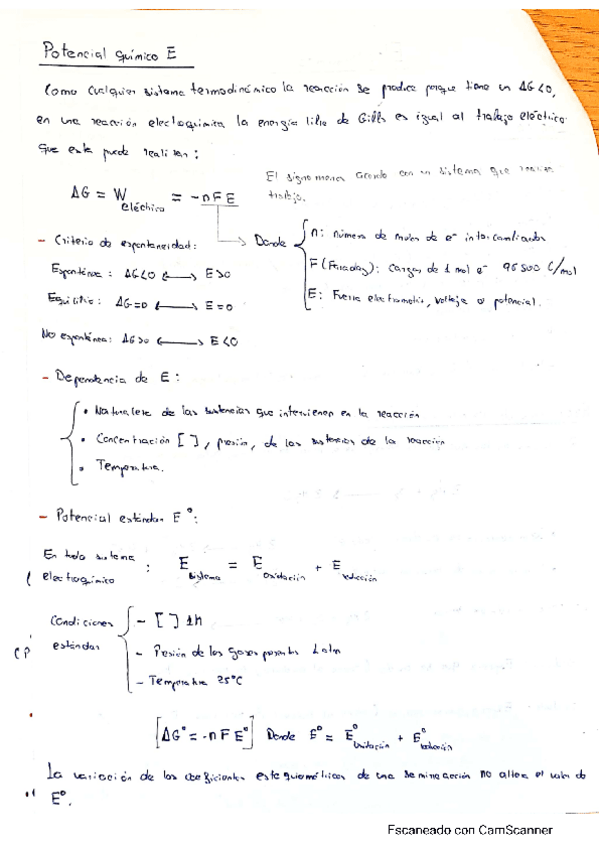 Potencial químico E
Como cualquier sistema termodinámico la reacción se produce porque tiene un ΔG<0,
en una reacción electroquímica la energía libre de Gibbs es igual al trabajo eléctrico
que esta puede realizar:
El signo menos acorde con un sistema que realiza
trabajo.
ΔG = W eléctrico = -nFE
- Criterio de espontaneidad:
Donde
n: número de moles de e⁻ intercambiados
F (Faraday): cargas de 1 mol e⁻ 96500 C/mol
E: Fuerza electromotriz, voltaje o potencial.
Espontánea: ΔG<0 ⟷ E>0
Equilibrio: ΔG=0 ⟷ E=0
No espontánea: ΔG>0 ⟷ E<0
- Dependencia de E:
• Naturaleza de las sustancias que intervienen en la reacción
• Concentración [ ], presión, de las sustancias de la reacción
• Temperatura.
- Potencial estándar E°:
En todo sistema
electroquímico : E sistema = E oxidación + E reducción
Condiciones
estándar
- [ ] 1M
- Presión de los gases 1 atm
- Temperatura 25°C
[ΔG° = -nFE°] Donde E° = E° oxidación + E° reducción
La variación de los coeficientes estequiométricos de una semirreacción no altera el valor de
E°.
Escaneado con CamScanner